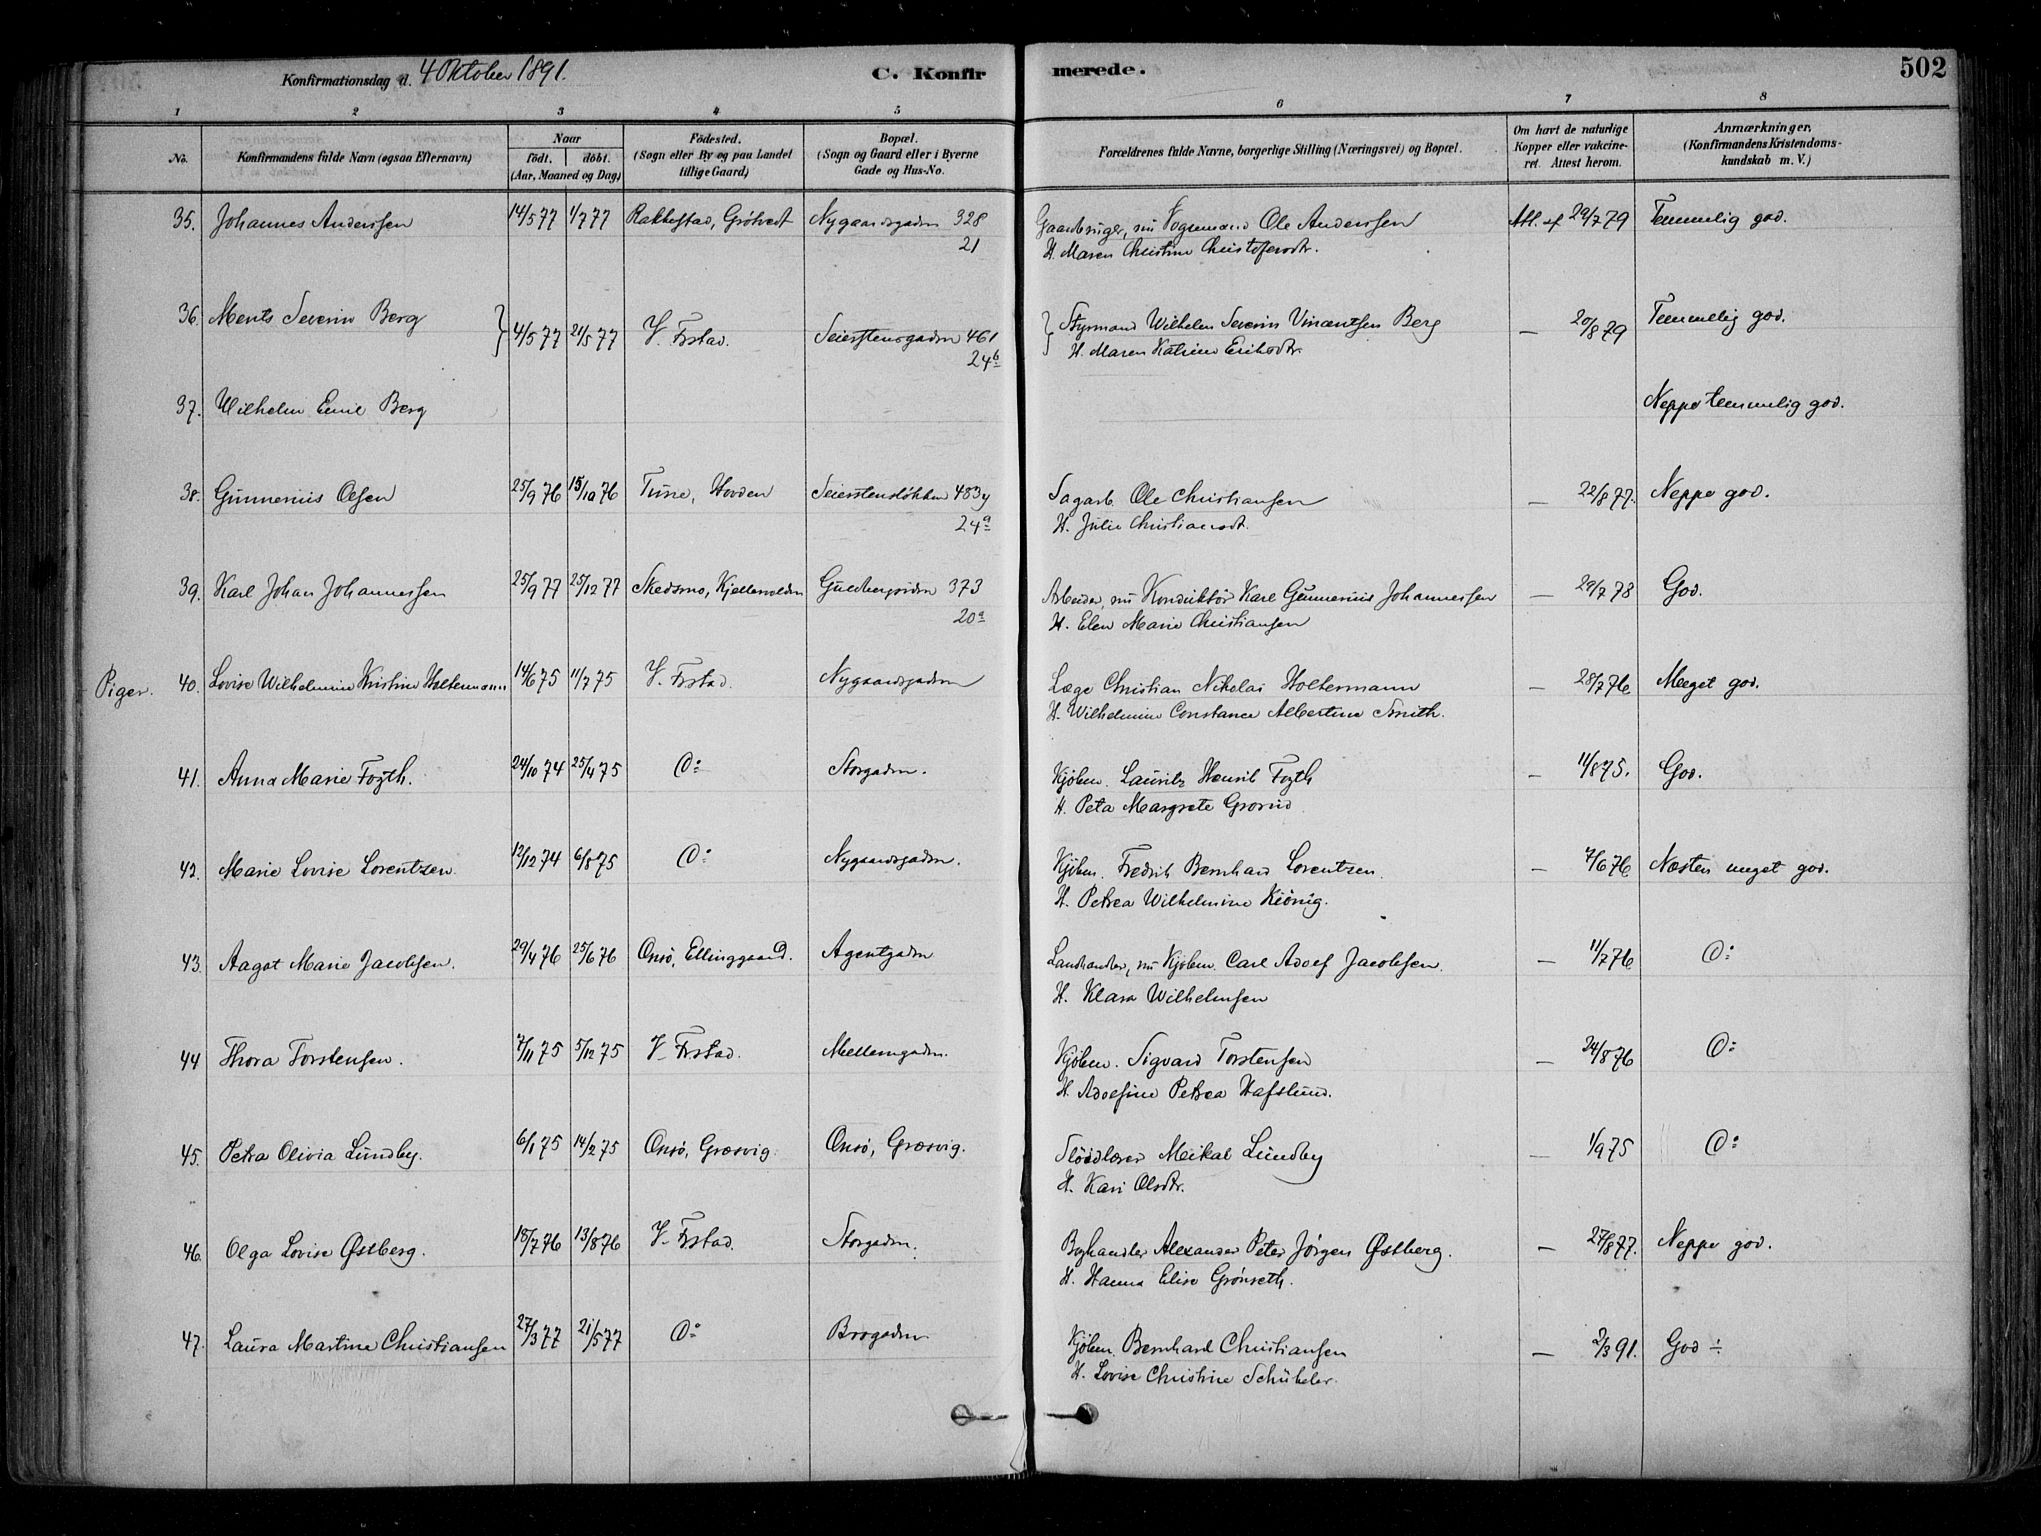 Konfirmationsdag d. 4 Oktober 1891.
C. Konfirmerede.
502
1 2 3 4 5 6 7 8
No. Konfirmandens fulde Navn (ogsaa Efternavn) Naar født. døbt. (Aar, Maaned og Dag) Fødested. (Sogn eller By og paa Landet tillige Gaard) Bopæl. (Sogn og Gaard eller i Byerne Gade og Hus-No. Forældrenes fulde Navne, borgerlige Stilling (Næringsvei) og Bopæl. Om havt de naturlige Kopper eller vakcineret. Attest herom. Anmærkninger. (Konfirmandens Kristendomskundskab m. V.)
35. Johannes Anderssen 14/5 77 1/7 77 Rakkestad, Grötvedt Nygaardsgaden 328 Gaardbruger, nu Vognmand Ole Anderssen Att. af 29/7 79 Temmelig god.
21 H. Maren Christine Christofersdtr.
36. Ments Severin Berg } 4/5 77 21/5 77 V. Frstad. Seierstensgaden 461 } Styrmand Wilhelm Severin Vincentsen Berg — 20/8 79 Temmelig god.
24b H. Maren Katrine Eriksdtr.
37. Wilhelm Emil Berg Neppe temmelig god.
38. Gunnerius Olsen 25/9 76 15/10 76 Tune, Hovden Seierstensløkken 483y Sagarb. Ole Christiansen — 22/8 77. Neppe god.
24a H. Julie Christiansdt.
39. Karl Johan Johannessen 25/9 77 25/12 77 Skedsmo, Kjellerholen Guldbergsiden 373 Arbeider, nu Konduktör Karl Gunnerius Johannessen — 29/7 78 God.
20a H. Elen Marie Christiansen
Piger. 40. Lovise Wilhelmine Kristine Holtermann 14/6 75 11/7 75 V. Frstad. Nygaardsgaden Læge Christian Nikolai Holtermann — 28/7 76 Meget god.
H. Wilhelmine Constance Albertine Smith.
41. Anna Marie Foyth. 24/10 74 25/4 75 Do Storgaden. Kjøbm. Lauritz Henrik Foyth — 11/8 75. God.
H. Peta Margrete Grorud
42. Marie Lovise Lorentzen. 12/12 74 6/5 75 Do Nygaardsgaden. Kjöbm. Fredrik Bernhard Lorentzen. — 7/6 76 Næsten meget god.
H. Petrea Wilhelmine Kiönig.
43. Aagot Marie Jacobsen. 29/4 76 25/6 76 Onsö, Ellinggaard. Agentgaden Landhandler, nu Kjöbm. Carl Adolf Jacobsen. — 11/7 76 Do
H. Klara Wilhelmsen
44 Thora Torstensen. 7/11 75 5/12 75 V. Frstad. Mellemgaden. Kjöbm. Sigvard Torstensen — 24/8 76 Do
H. Adolfine Petrea Hafslund.
45. Petra Olivia Lundby. 6/1 75 14/2 75 Onsö, Græsvig. Onsö, Græsvig. Slöidlærer Meikal Lundby — 1/9 75 Do
H. Kari Olsdtr.
46. Olga Lovise Østberg. 18/7 76 13/8 76 V. Frstad. Storgaden. Boghandler Alexander Peter Jörgen Østberg. — 27/8 77. Neppe god.
H. Hanna Elise Grönseth.
47. Laura Martine Christiansen 27/3 77 21/5 77 Do Brogaden Kjöbm. Bernhard Christiansen — 2/3 91. God ÷
H. Lovise Christine Schübeler.